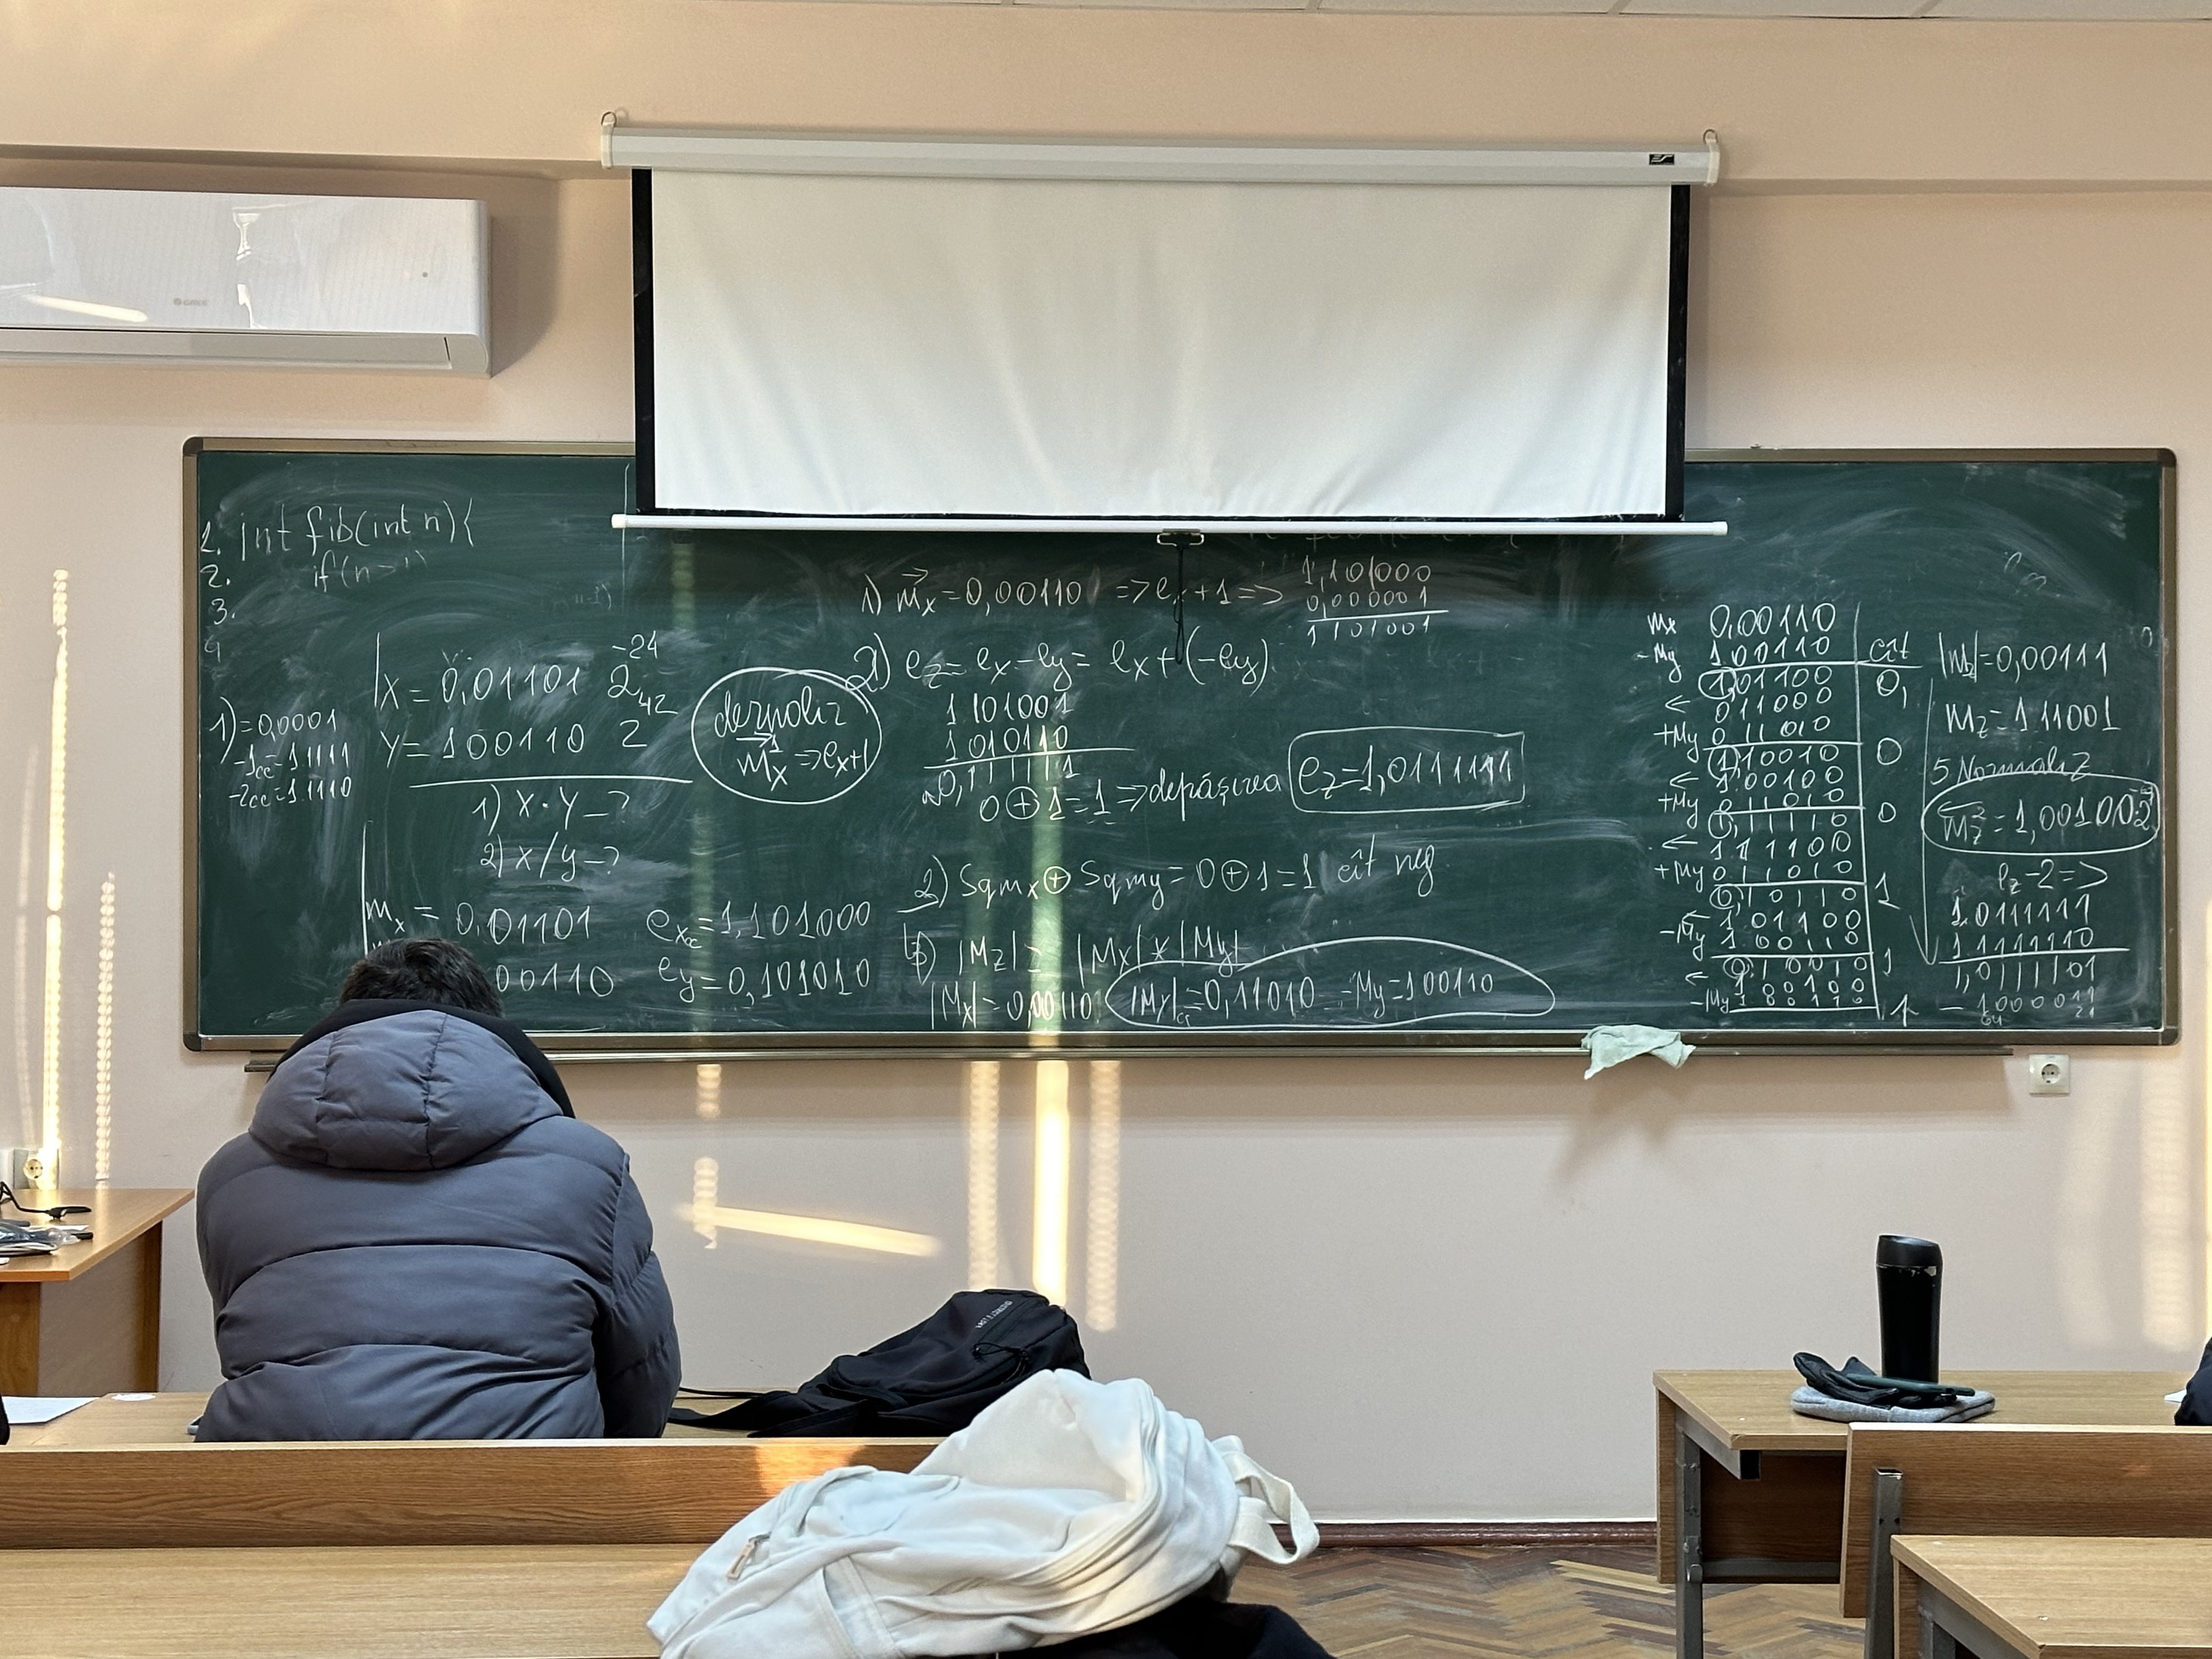 1. int fib(int n){
2. if(n>1)
3.
4
1)=0,0001
-1cc=1.1111
-2cc=1.1110
X=0,01101 2 -24
Y=100110 2 42
1) X·Y-?
2) X/Y-?
mx=0,01101
00110
exc=1,101000
ey=0,101010
mx=>ex+1
1) mx=0,00110 =>ex+1=>
1,101000
0,000001
1101001
2) ez=ex-ey=ex+(-ey)
1 101001
1 010110
0,111111
0⊕1=1=>depășirea
ez=1,0111111
2) Sqmx⊕Sqmy=0⊕1=1 cît neg
|Mz|= |Mx|*|My|
|Mx|=0,00110
|My|cc=0,11010 -My=100110
Mx 0,00110
-My 1,00110 cît
1,01100 0,
← 011000
+My 0 11 010
1)10010 0
← 1,00100
+My 011010
1,11110 0
← 111100
+My 011010
0,10110 1
← 1 01100
-My 1 00110
0,10010 1
← 1 00100
-My 1 00110 1
|mz|=0,00111
mz=1.11001
5 Normaliz
mz=1,00100
ez-2=>
1.0111111
1 1111110
1,0111101
- 1000011